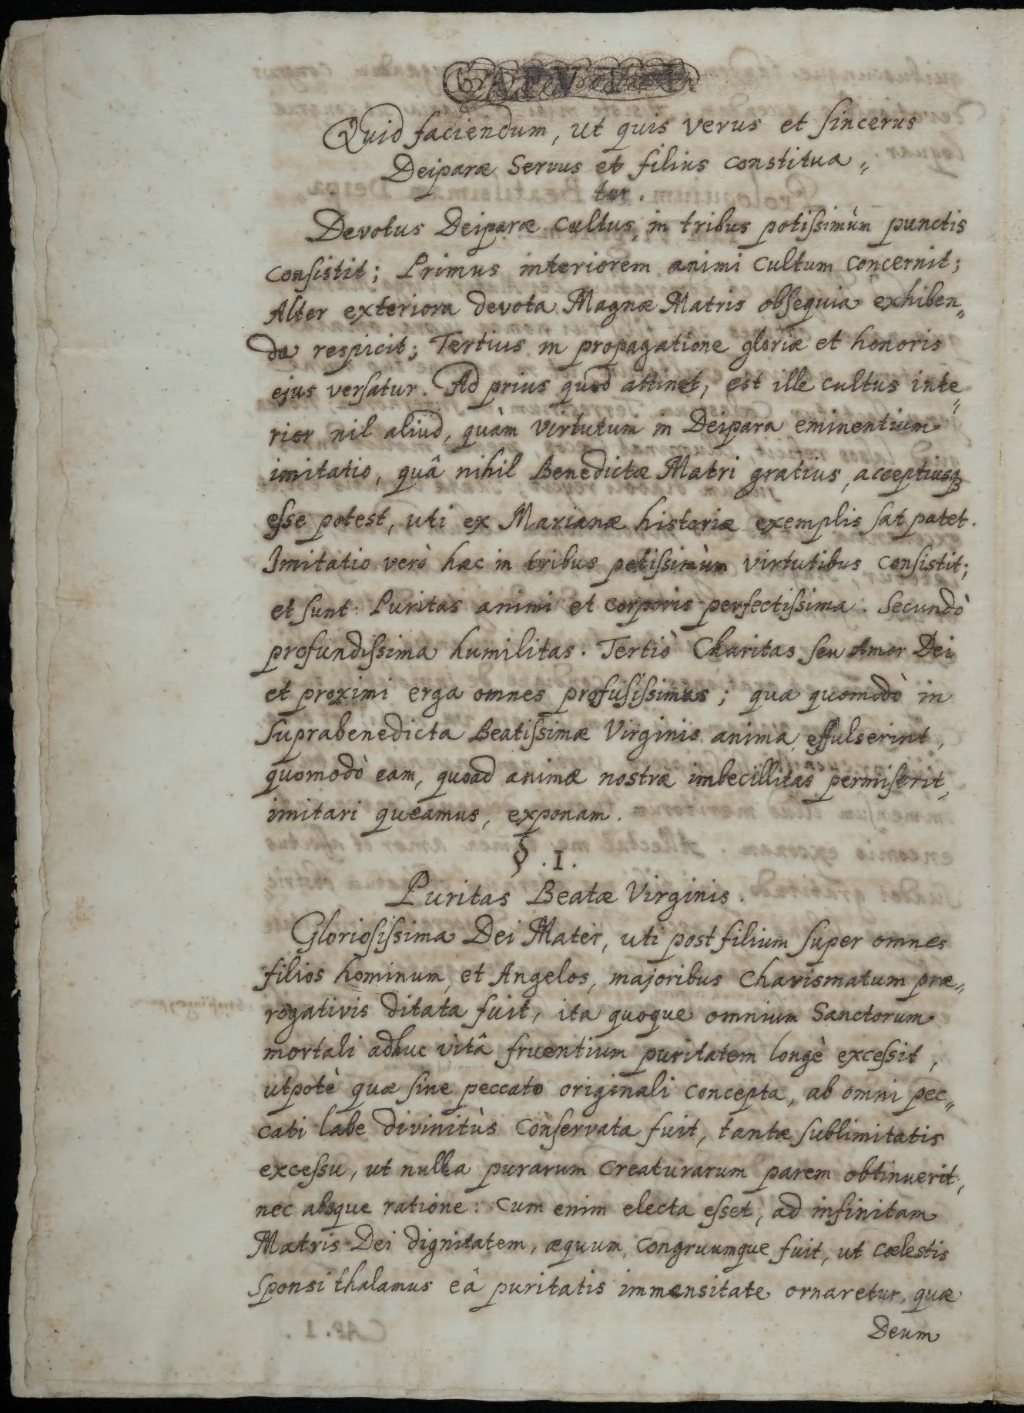 CAPVT I.
Quid faciendum, ut quis verus et sincerus
Deiparæ Servus et filius constitua„
tur.
Devotus Deiparæ cultus, in tribus potissimùm punctis
consistit; Primus interiorem animi cultum concernit;
Alter exteriora devota Magnæ Matris obsequia exhiben„
da respicit; Tertius in propagatione gloriæ et honoris
ejus versatur. Ad prius quod attinet, est ille cultus inte„
rior nil aliud, quàm virtutum in Deipara eminentium
imitatio, quâ nihil Benedictæ Matri gratius, acceptiusq3
esse potest, uti ex Marianæ historiæ exemplis sat patet.
Imitatio verò hæc in tribus potissimùm virtutibus consistit;
et sunt: Puritas animi et corporis perfectissima. Secundò
profundissima humilitas. Tertiò Charitas seu Amor Dei
et proximi erga omnes profusissimus; quæ quomodò in
suprabenedicta Beatissimæ Virginis anima effulserint,
quomodò eam, quoad animæ nostræ imbecillitas permiserit,
imitari queamus, exponam.
§.1.
Puritas Beatæ Virginis.
Gloriosissima Dei Mater, uti post filium super omnes
filios hominum, et Angelos, majoribus Charismatum præ„
rogativis ditata fuit, ita quoque omnium Sanctorum
mortali adhuc vitâ fruentium puritatem longè excessit,
utpotè quæ sine peccato originali concepta, ab omni pec„
cati labe divinitùs conservata fuit, tantæ sublimitatis
excessu, ut nulla purarum creaturarum parem obtinuerit,
nec absque ratione: Cum enim electa esset, ad infinitam
Matris Dei dignitatem, æquum, congruumque fuit, ut cœlestis
Sponsi thalamus eâ puritatis immensitate ornaretur, quæ
Deum